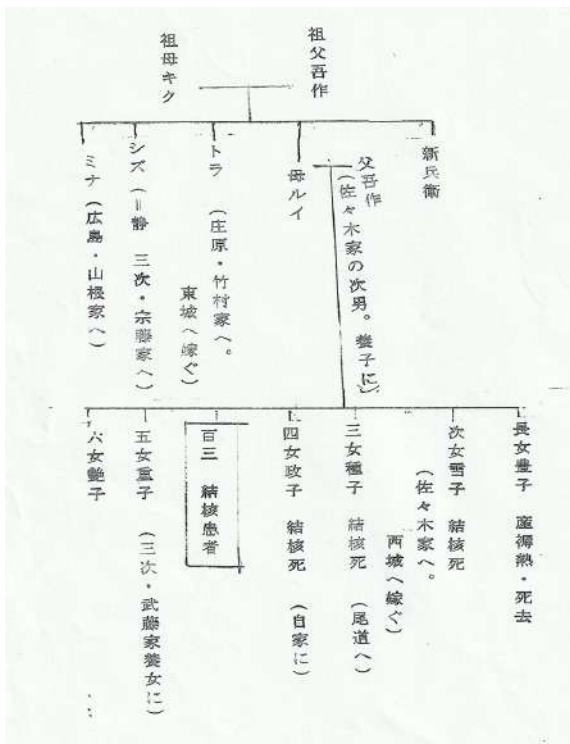 祖父吾作
祖母キク
新兵衛
父吾作
(佐々木家の次男。養子に)
母ルイ
トラ (庄原・竹村家へ。
東城へ嫁ぐ)
シズ (=静 三次・宗藤家へ)
ミナ (広島・山根家へ)
長女豊子 産褥熱・死去
次女雪子 結核死
(佐々木家へ。
西城へ嫁ぐ)
三女種子 結核死 (尾道へ)
四女政子 結核死 (自家に)
百三 結核患者
五女重子 (三次・武藤家養女に)
六女艶子